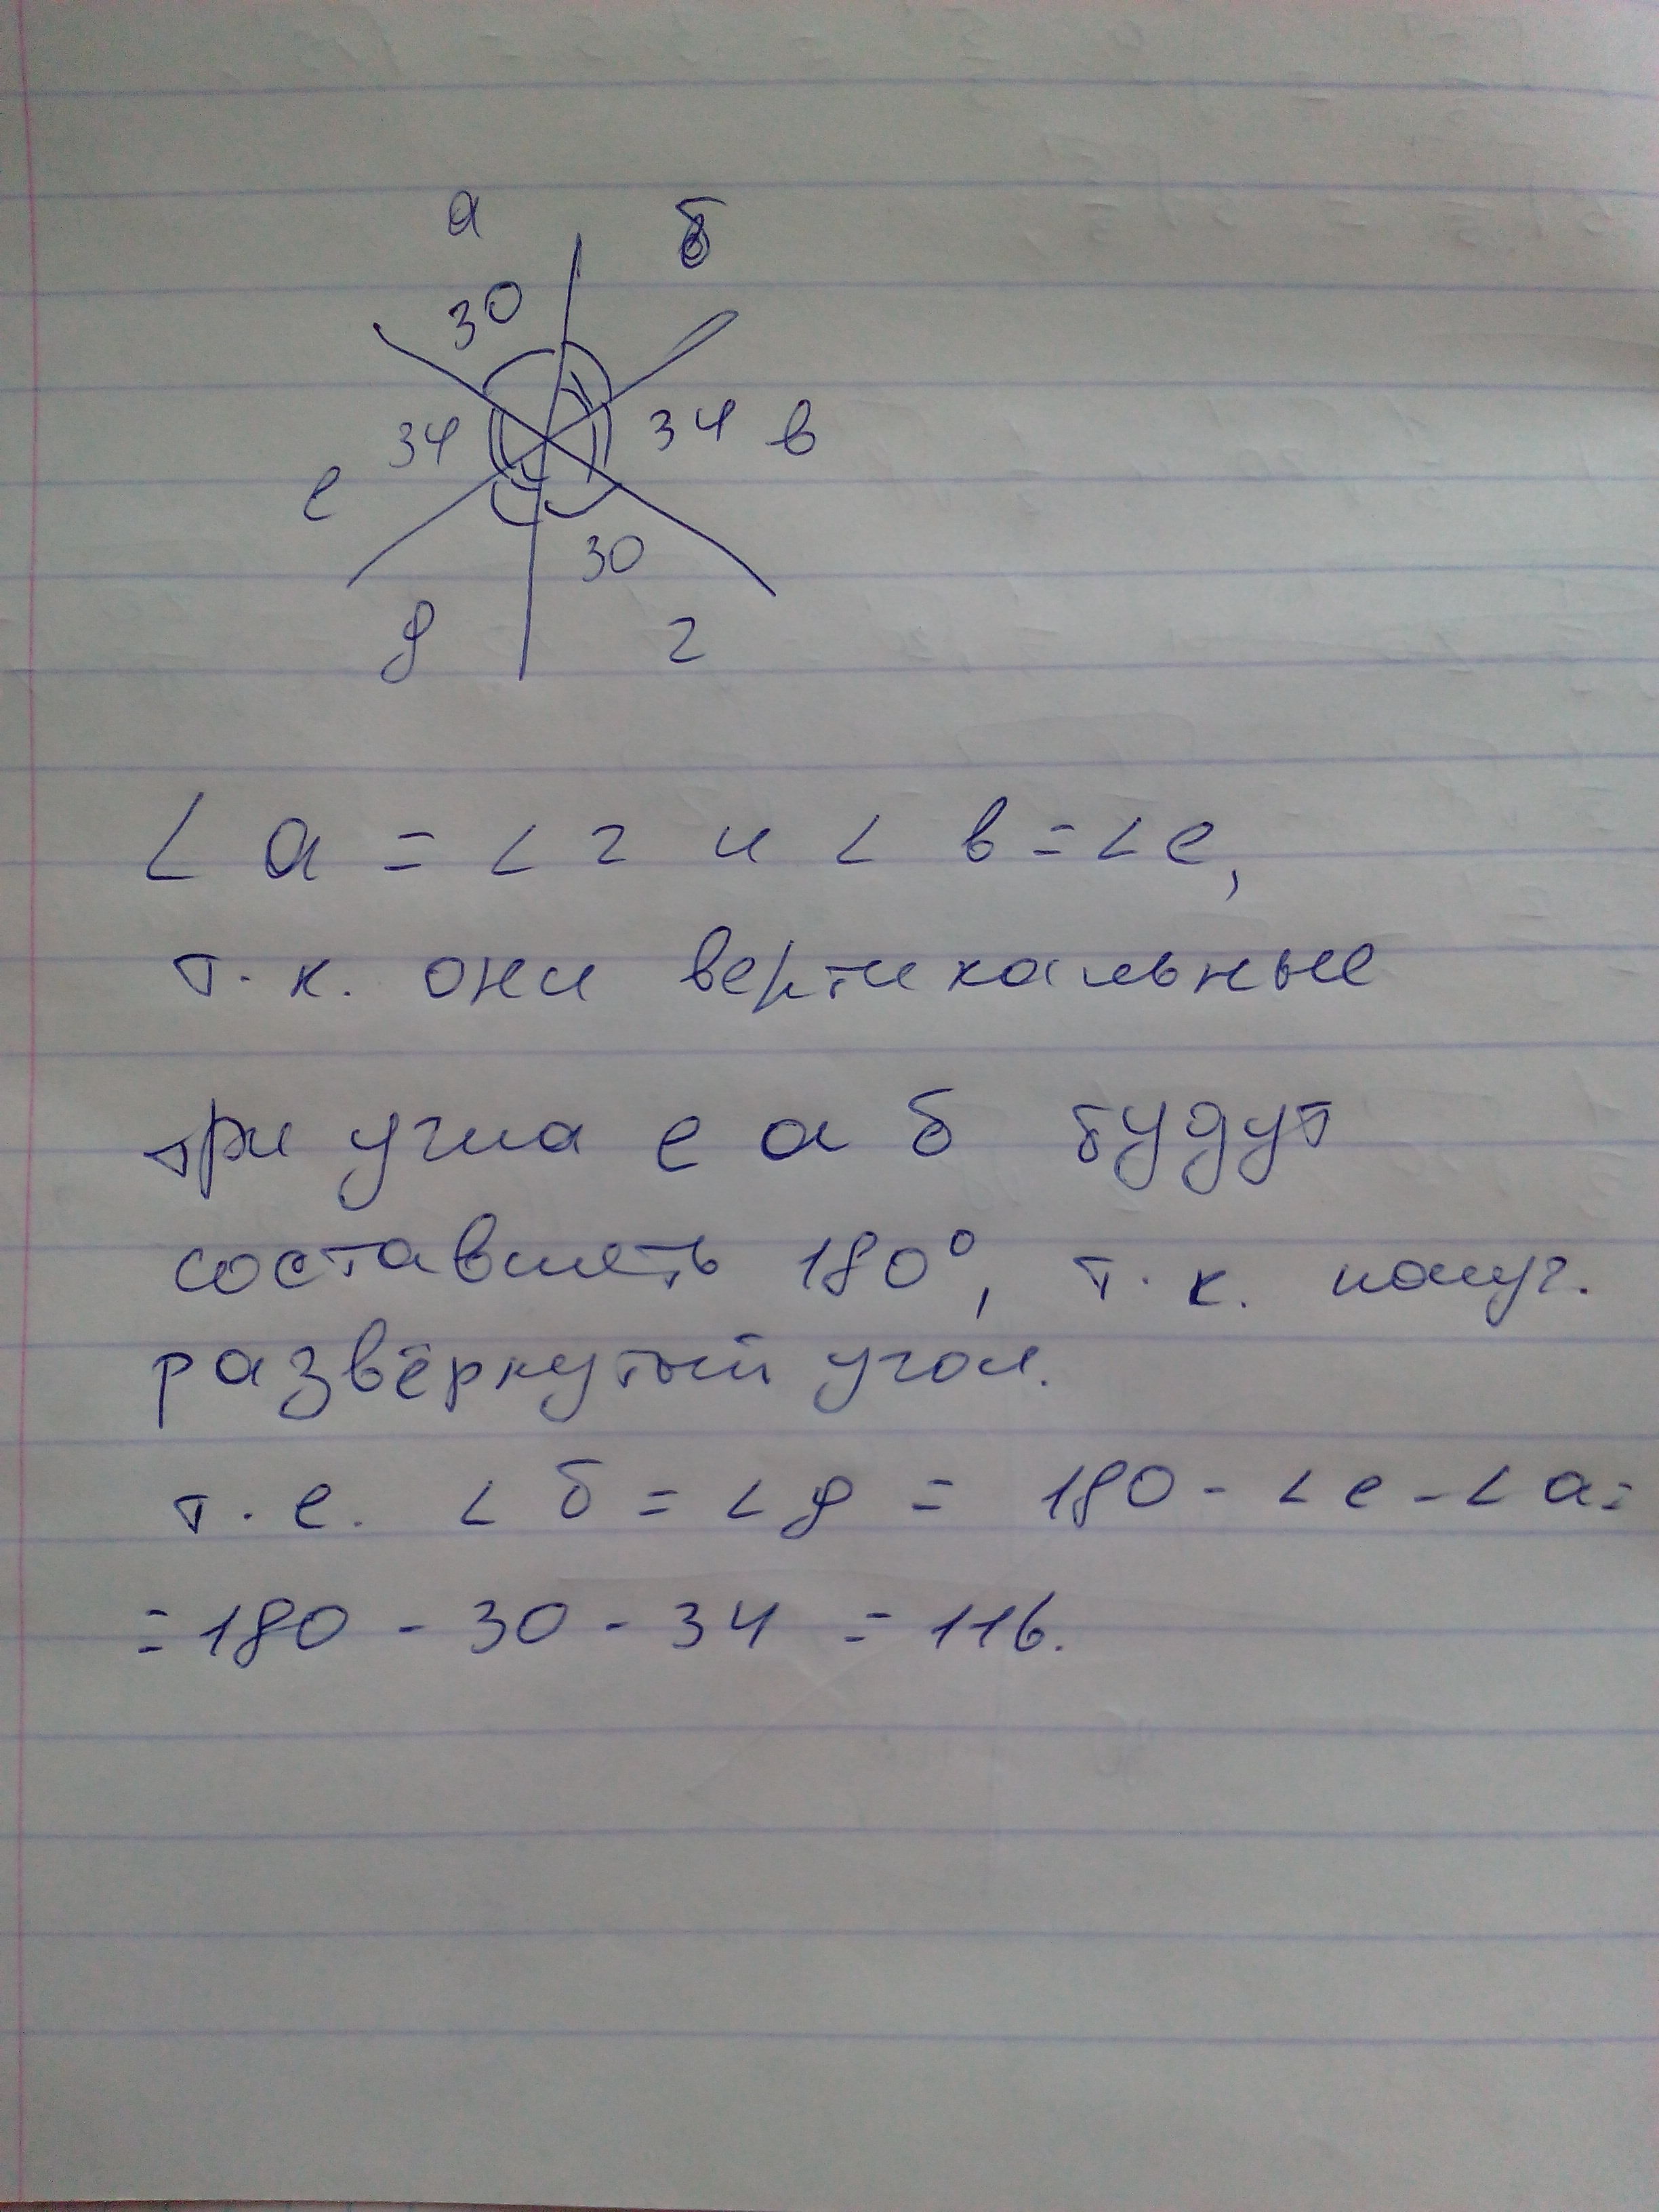 а б
30
34 34 в
е
30
д г
∠ а = ∠ г и ∠ в = ∠ е,
т. к. они вертикальные
три угла е а б будут
составлять 180°, т. к. получ.
развёрнутый угол.
т. е. ∠ б = ∠ д = 180 - ∠ е - ∠ а =
= 180 - 30 - 34 = 116.